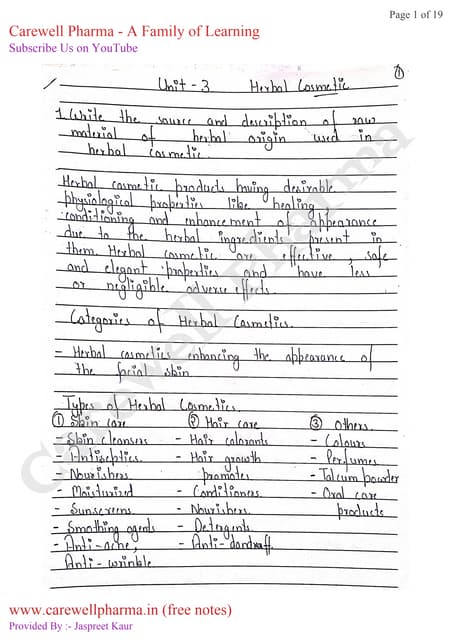 Page 1 of 19
Carewell Pharma - A Family of Learning
Subscribe Us on YouTube
①
Unit - 3 Herbal Cosmetic
1. Write the source and description of raw
material of herbal origin used in
herbal cosmetic.
Herbal cosmetic products having desirable
physiological properties like healing,
conditioning and enhancement of appearance
due to the herbal ingredients present in
them. Herbal cosmetic are effective, safe
and elegant properties and have less
or negligible adverse effects.
Categories of Herbal Cosmetics.
- Herbal cosmetics enhancing the appearance of
the facial skin
Types of Herbal Cosmetics.
① Skin care ② Hair care ③ Others.
- Skin cleansers - Hair colorants - Colours
- Antiseptics - Hair growth - Perfumes
- Nourishers promotes - Talcum powder
- Moisturized - Conditioners - Oral care
- Sunscreens - Nourishers. products
- Smothing agents - Detergents.
- Anti-acne, - Anti-dandraff.
Anti-wrinkle
Carewell Pharma
www.carewellpharma.in (free notes)
Provided By :- Jaspreet Kaur